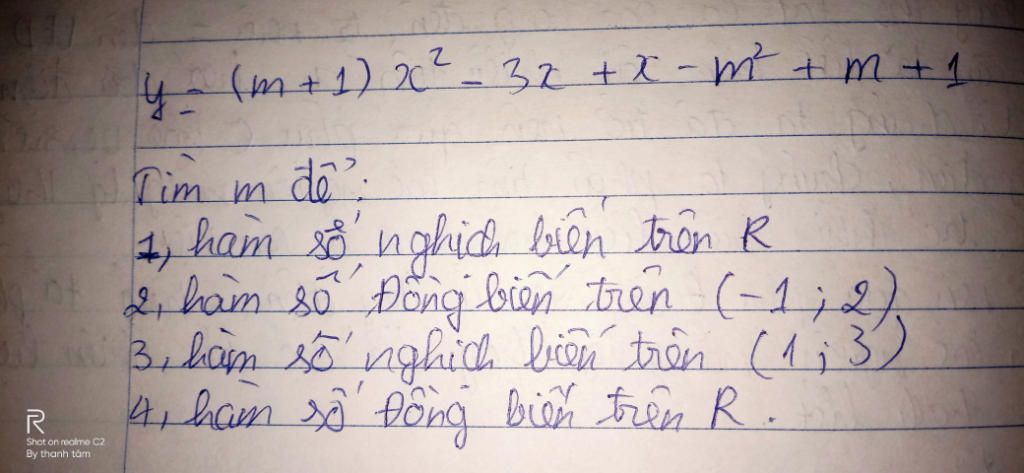 y = (m + 1) x² - 3x + x - m² + m + 1
Tìm m để :
1, hàm số nghịch biến trên R
2, hàm số Đồng biến trên (-1 ; 2)
3, hàm số nghịch biến trên (1 ; 3)
4, hàm số Đồng biến trên R .
R
Shot on realme C2
By thanh tâm